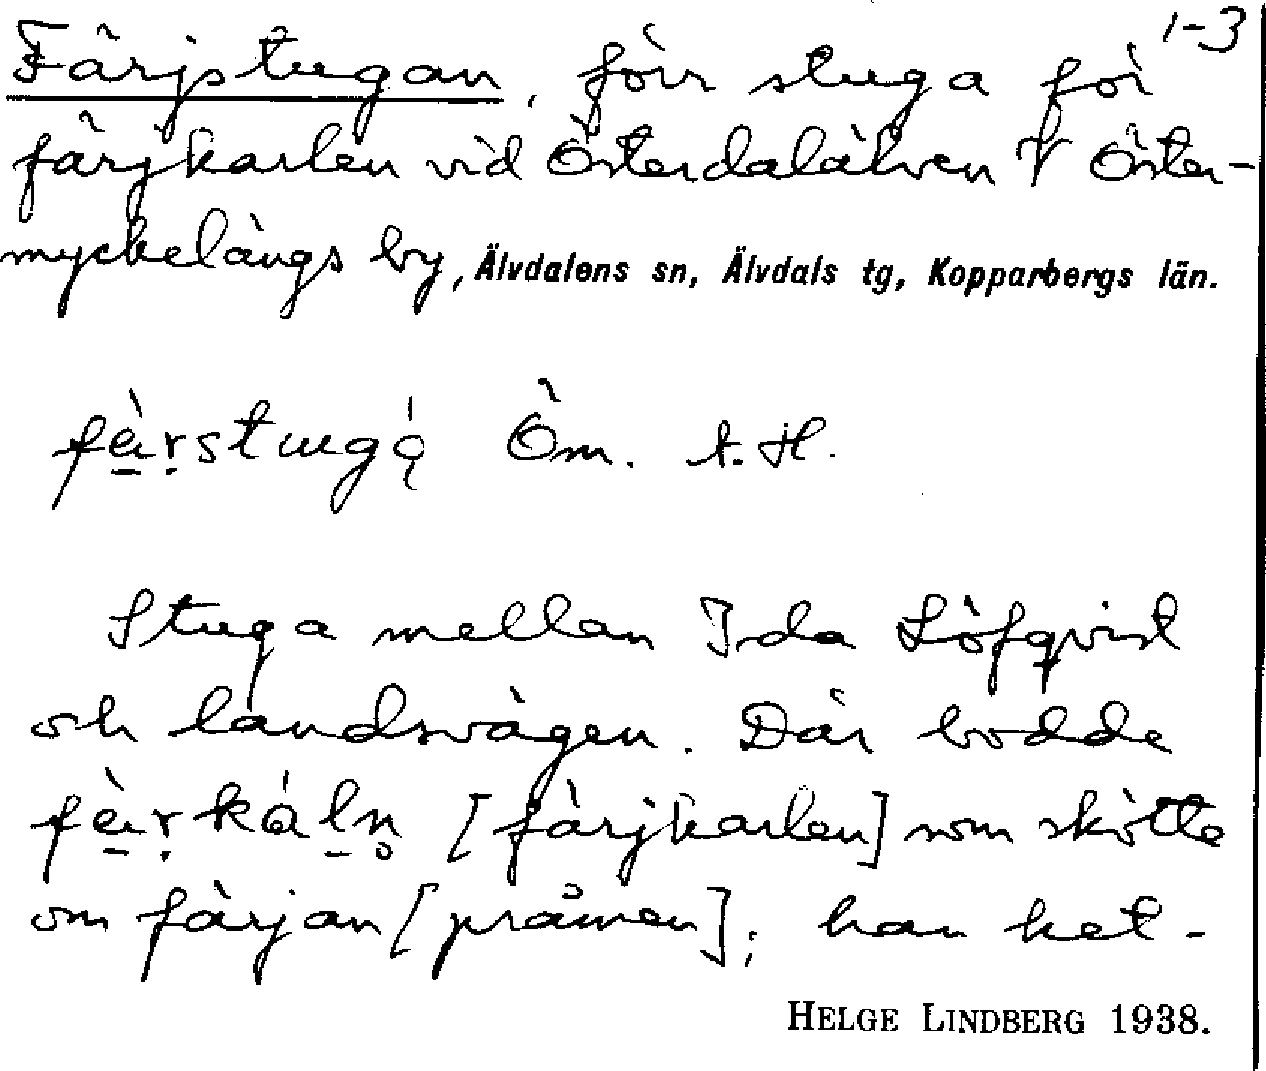 1-3
Färjstugan, förr stuga för
färjkarlen vid Österdalälven i Öster-
myckelängs by, Älvdalens sn, Älvdals tg, Kopparbergs län.
fä̀rstugą Öm. t. H.
Stuga mellan Ida Löfqvist
och landsvägen. Där bodde
fä̀rkáln̥ [färjkarlen] som skötte
om färjan [pråmen]; han het-
HELGE LINDBERG 1938.